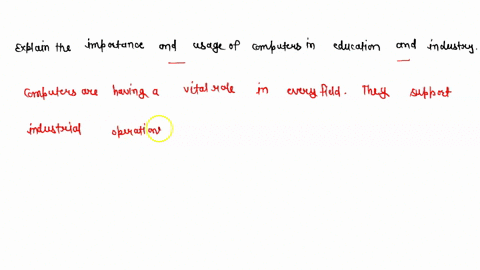 Explain the importance and usage of computers in education and industry.
Computers are having a vital role in every field. They support
industrial operations